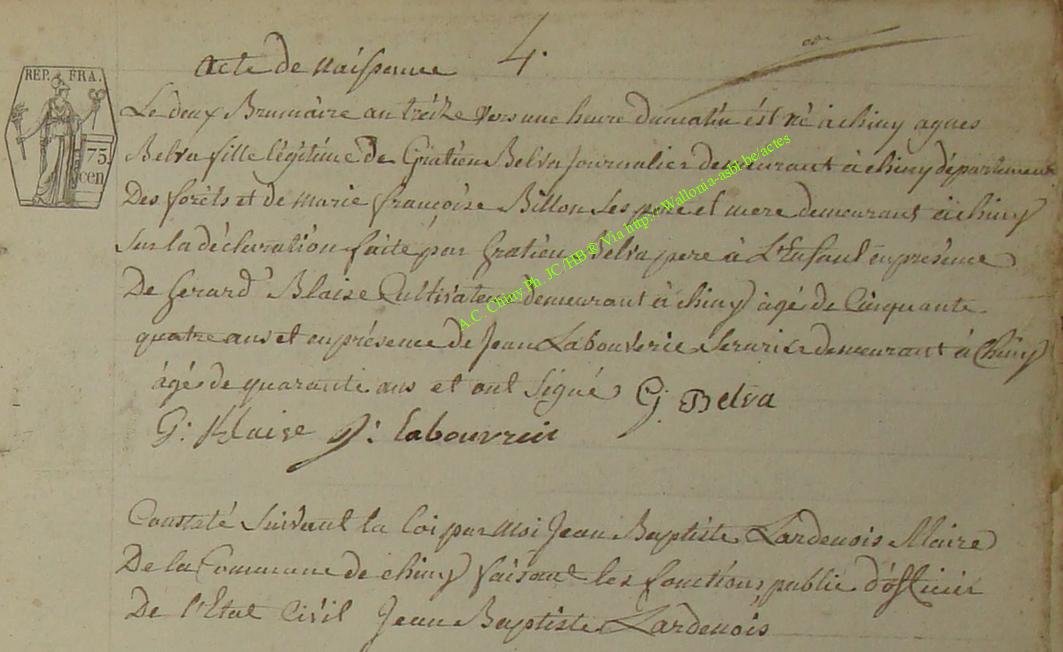 Acte de naissance 4.
REP. FRA.
75
cen
Le deux Brumaire an treize vers une heure du matin ést né à chiny agnes
Belva fille légitime de Gratien Belva Journalier demeurant à chiny département
Des foréts et de Marie françoise Billon Ses pere et mere demeurant à chiny
Sur la déclaration faite par Gratien Belva pere à L'Enfant en présence
De Gerard Blaise Cultivateur demeurant à chiny àgé de Cinquante
quatre ans et en présence de Jean Labouverie Serurier demeurant à Chiny
àgé de quarante ans et ont Signé G. Belva
G. Blaise J: labouvrie
A.C. Chiny Ph. JC /HB® Via http://Wallonia-asbl.be/actes
Constaté Suivant la loi par Moi Jean Baptiste Lardenois Maire
De la Commune de chiny faisant les fonctions public d'officier
De l'Etat Civil Jean Baptiste Lardenois